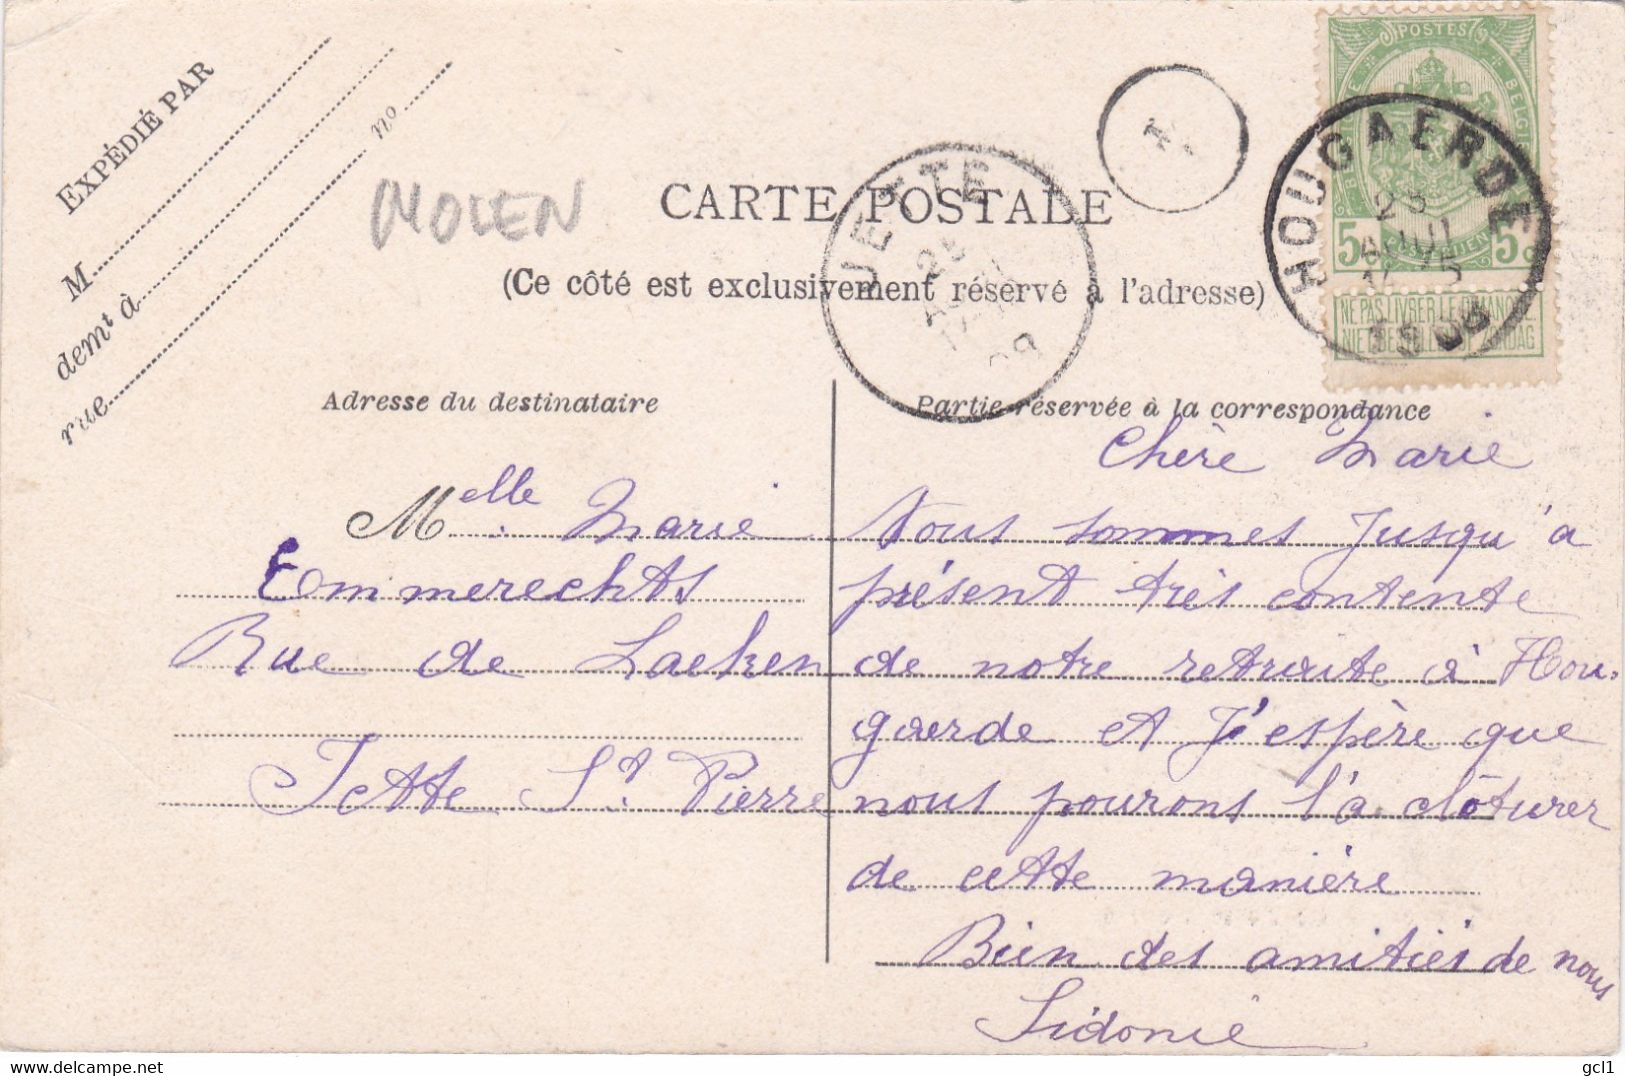 EXPÉDIÉ PAR
M
demt à
rue
no
MOLEN
CARTE POSTALE
(Ce côté est exclusivement réservé à l'adresse)
JETTE
25
09
POSTES
BELGIQUE
BELGIË
5c
5c
NE PAS LIVRER LE DIMANCHE
NIET BESTELLEN OP ZONDAG
HOUGAERDE
25
Adresse du destinataire
Melle Marie
Commerechts
Rue de Laeken
Jette St Pierre
Partie réservée à la correspondance
Chère Marie
Nous sommes jusqu'à
présent très contente
de notre retraite à Hou-
gaerde et j'espère que
nous pourons l'a clôturer
de cette manière
Bien des amitiés de nous
Sidonie
https://www.delcampe.net
gcl1